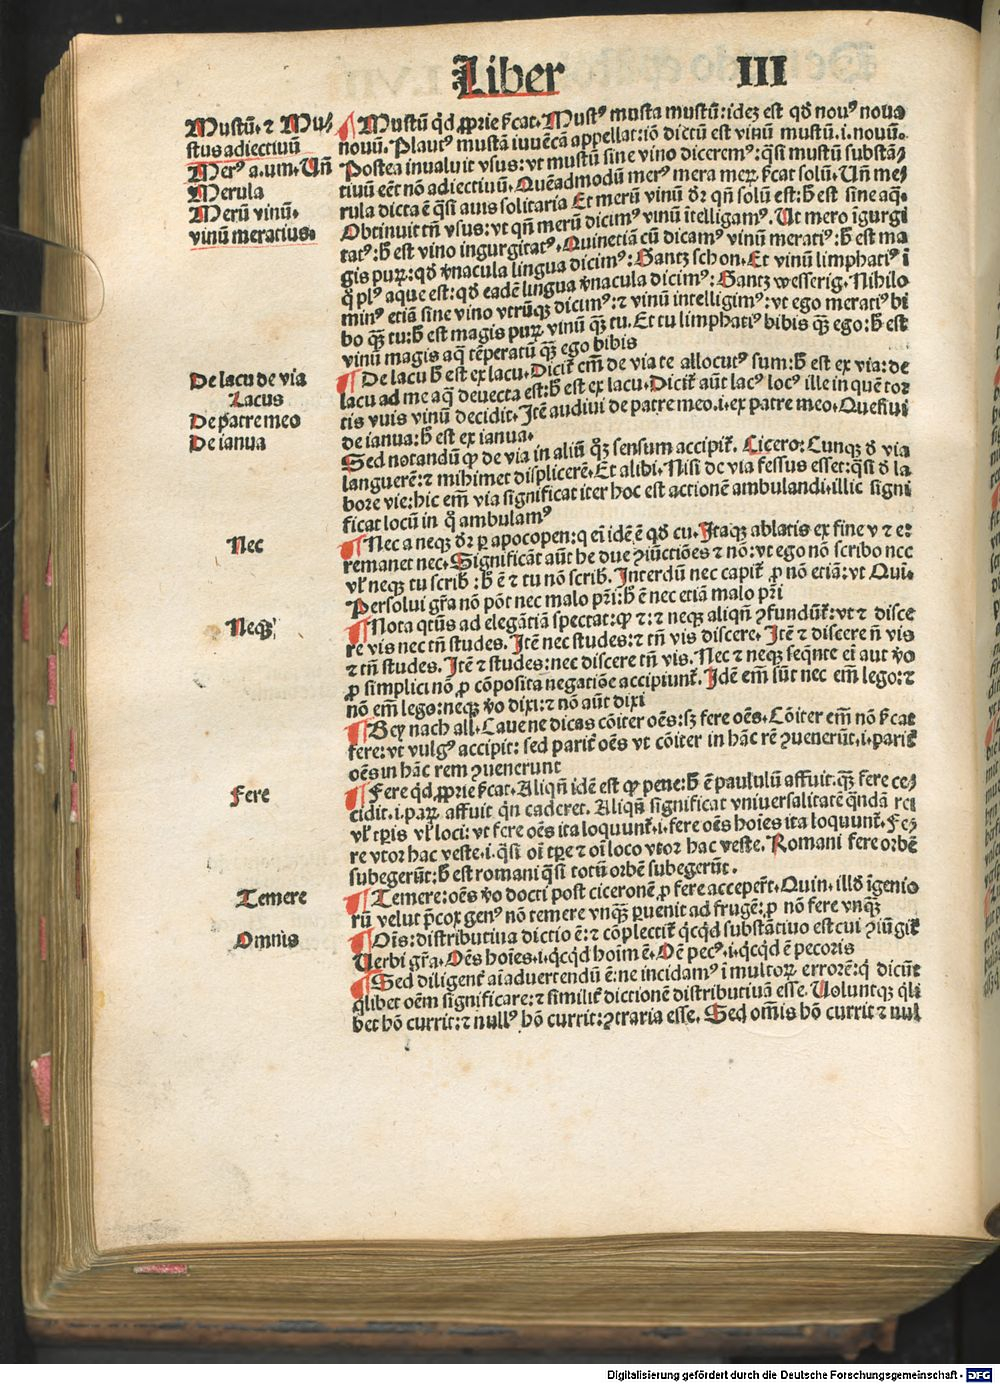 Liber III
Mustū. ⁊ Mu⸗
stus adiectiuū
Merꝰ a.um. Uñ
Merula
Merū vinū.
vinū meratius.
¶ Mustū qd ꝓprie sc̄at. Mustꝰ musta mustū: idez est qd nouꝰ noua
nouū. Plautꝰ mustā iuuēcā appellat: iō dictū est vinū mustū .i. nouū.
Postea inualuit vsus: vt mustū sine vino diceremꝰ: q̄si mustū substā⸗
tiuū eēt nō adiectiuū. Quēadmodū merꝰ mera merꝝ sc̄at solū. Uñ me⸗
rula dicta ē q̄si auis solitaria Et merū vinū dr̄ qñ solū est: h̄ est sine aq̄.
Obtinuit tñ vsus: vt qñ merū dicimꝰ vinū ītelligamꝰ. Ut mero īgurgi
tatꝰ: h̄ est vino ingurgitatꝰ. Quinetiā cū dicamꝰ vinū meratiꝰ: h̄ est ma
gis purꝝ: qd v̄nacula lingua dicimꝰ: Gantz schon. Et vinū limphatiꝰ ī
q̊ plꝰ aque est: qd eadē lingua v̄nacula dicimꝰ: Gantz wesserig. Nihilo
minꝰ etiā sine vino vtrūqꝫ dicimꝰ: ⁊ vinū intelligimꝰ: vt ego meratiꝰ bi
bo qꝫ tu: h̄ est magis purꝝ vinū qꝫ tu. Et tu limphatiꝰ bibis qꝫ ego: h̄ est
vinū magis aq̄ tēperatū qꝫ ego bibis
De lacu de via
Lacus
De patre meo
De ianua
¶ De lacu h̄ est ex lacu. Dicit̄ em̄ de via te allocutꝰ sum: h̄ est ex via: de
lacu ad me aq̄ deuecta est: h̄ est ex lacu. Dicit̄ aūt lacꝰ locꝰ ille in quē tor
tis vuis vinū decidit. Itē audiui de patre meo .i. ex patre meo. Quesiui
de ianua: h̄ est ex ianua.
Sed notandū ꝙ de via in aliū qꝫ sensum accipit̄. Cicero: Cunqꝫ d̄ via
languerē: ⁊ mihimet displicerē. Et alibi. Nisi de via fessus esset: q̄si d̄ la
bore vie: hic em̄ via significat iter hoc est actionē ambulandi. illic signi
ficat locū in q̊ ambulamꝰ
Nec
¶ Nec a neqꝫ dr̄ ꝑ apocopen: q ei idē ē qd cu. Itaqꝫ ablatis ex fine v ⁊ e:
remanet nec. Significāt aūt he due ꝯiūctiōes ⁊ nō: vt ego nō scribo nec
vl̄ neqꝫ tu scrib̄: h̄ ē ⁊ tu nō scrib̄. Interdū nec capit̄ ꝓ nō etiā: vt Qui.
Persolui gr̄a nō pōt nec malo pr̄i: h̄ ē nec etiā malo pr̄i
Neqꝫ
¶ Nota qtūs ad elegātiā spectat: ꝙ ⁊: ⁊ neqꝫ aliqñ ꝯfundūt̄: vt ⁊ disce
re vis nec tñ studes. Itē nec studes: ⁊ tñ vis discere. Itē ⁊ discere ñ vis
⁊ tñ studes. Itē ⁊ studes: nec discere tñ vis. Nec ⁊ neqꝫ seq̄nte ei aut v̄o
ꝓ simplici nō ꝓ cōposita negatiōe accipiunt̄. Idē em̄ sūt nec em̄ lego: ⁊
nō em̄ lego: neqꝫ v̄o dixi: ⁊ nō aūt dixi
¶ Bey nach all. Caue ne dicas cōiter oēs: sꝫ fere oēs. Cōiter em̄ nō sc̄at
fere: vt vulgꝰ accipit: sed parit̄ oēs vt cōiter in hāc rē ꝯuenerūt .i. parit̄
oēs in hāc rem ꝯuenerunt
Fere
¶ Fere qd ꝓprie sc̄at. Aliqñ idē est ꝙ pene: h̄ ē paululū affuit. qꝫ fere ce⸗
cidit .i. parꝝ affuit qn caderet. Aliqñ significat vniuersalitatē q̄ndā rei
vl̄ tꝑis vl̄ loci: vt fere oēs ita loquunt̄ .i. fere oēs hoīes ita loquunt̄. Fe⸗
re vtor hac veste .i. q̄si oī tꝑe ⁊ oī loco vtor hac veste. Romani fere orbē
subegerūt: h̄ est romani q̄si totū orbē subegerūt.
Temere
¶ Temere: oēs v̄o docti post ciceronē ꝓ fere acceper̄t. Quin. illd̄ īgenio
rū velut p̄cox genꝰ nō temere vnqꝫ ꝑuenit ad frugē: ꝓ nō fere vnqꝫ
Omnis
¶ Oīs: distributiua dictio ē: ⁊ cōplectit̄ qcqd substātiuo est cui ꝯiūgit̄
Uerbi gr̄a. Oēs hoīes .i. qcqd hoīm ē. Oē pecꝰ .i. qcqd ē pecoris
¶ Sed diligent̄ aīaduertendū ē: ne incidamꝰ ī multoꝝ errorē: q̄ dicūt
q̄libet oēm significare: ⁊ similit̄ dictionē distributiuā esse. Uoluntqꝫ q̄li
bet hō currit: ⁊ nullꝰ hō currit: ꝯtraria esse. Sed om̄is hō currit ⁊ nul
Digitalisierung gefördert durch die Deutsche Forschungsgemeinschaft - DFG